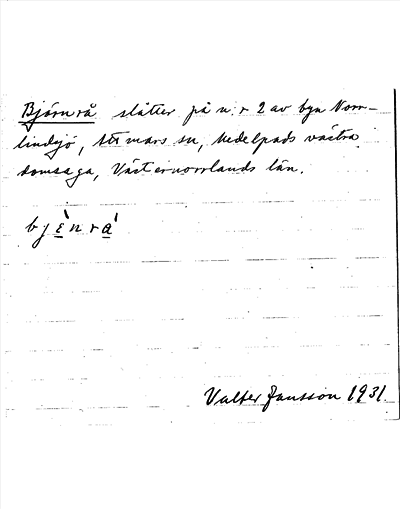 Björnrå slåtter på n:r 2 av byn Norr-
lindsjö, Attmars sn, Medelpads västra
domsaga, Västernorrlands län.
bjὲnrá
Valter Jansson 1931.